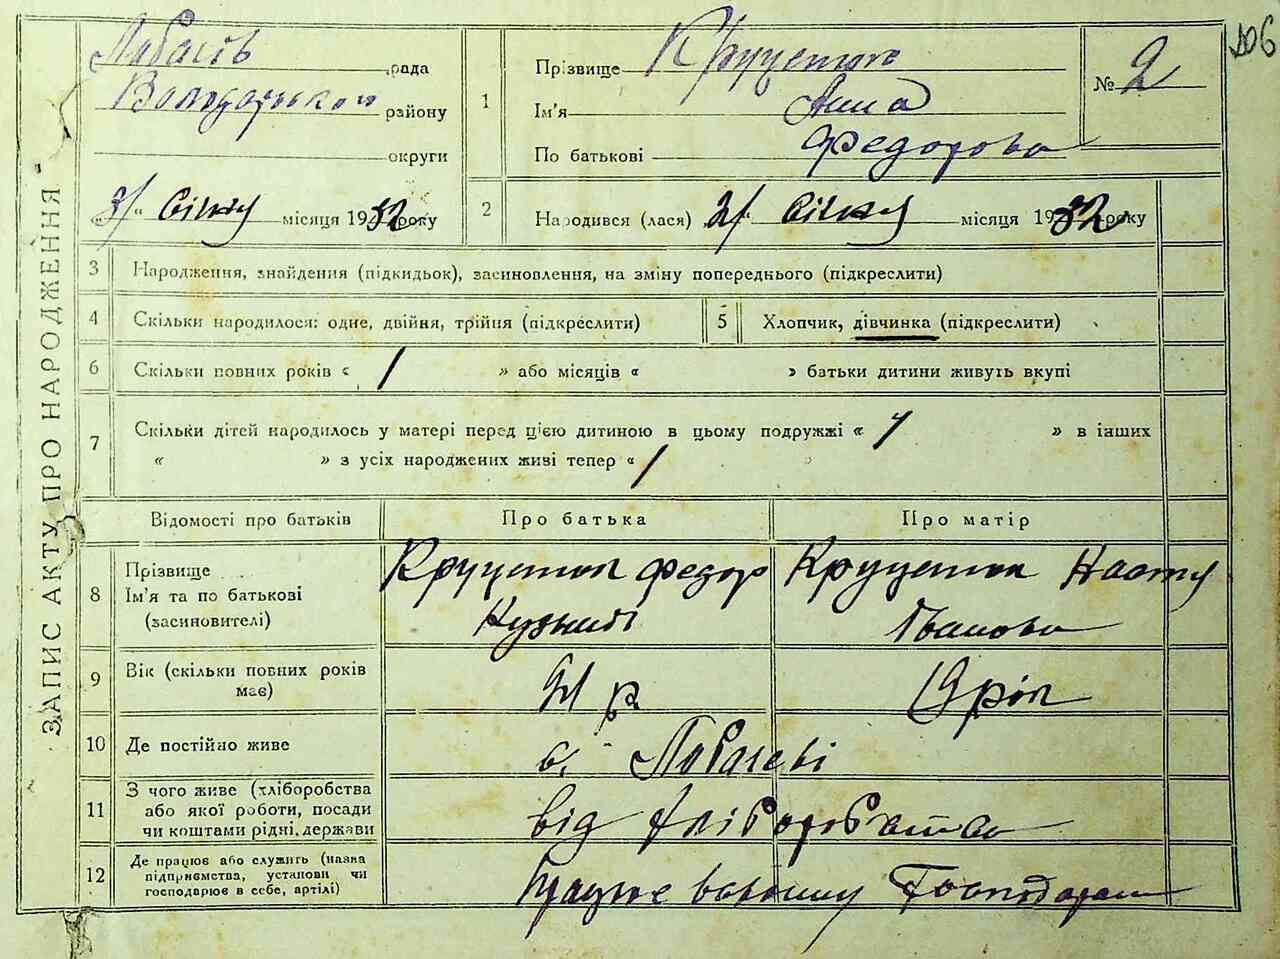 106
ЗАПИС АКТУ ПРО НАРОДЖЕННЯ
рада
Володарського району
округи
"3" Січня місяця 1932 року
1 Прізвище
Ім'я Анна
По батькові Федорова
№ 2
2 Народився (лася) "2" Січня місяця 1932 року
3 Народження, знайдення (підкидьок), засиновлення, на зміну попереднього (підкреслити)
4 Скільки народилося: одне, двійня, трійня (підкреслити)
5 Хлопчик, дівчинка (підкреслити)
6 Скільки повних років « 1 » або місяців « » батьки дитини живуть вкупі
7 Скільки дітей народилось у матері перед цією дитиною в цьому подружжі « 1 » в інших
« » з усіх народжених живі тепер « 1
Відомості про батьків Про батька Про матір
8 Прізвище
Ім'я та по батькові
(засиновителі)
Федор
Настя
Іванова
9 Вік (скільки повних років
має)
21 р.
19 рік
10 Де постійно живе
с.
11 З чого живе (хліборобства
або якої роботи, посади
чи коштами рідні, держави
від хліборобства
12 Де працює або служить (назва
підприємства, установи чи
господарює в себе, артілі)
Працює